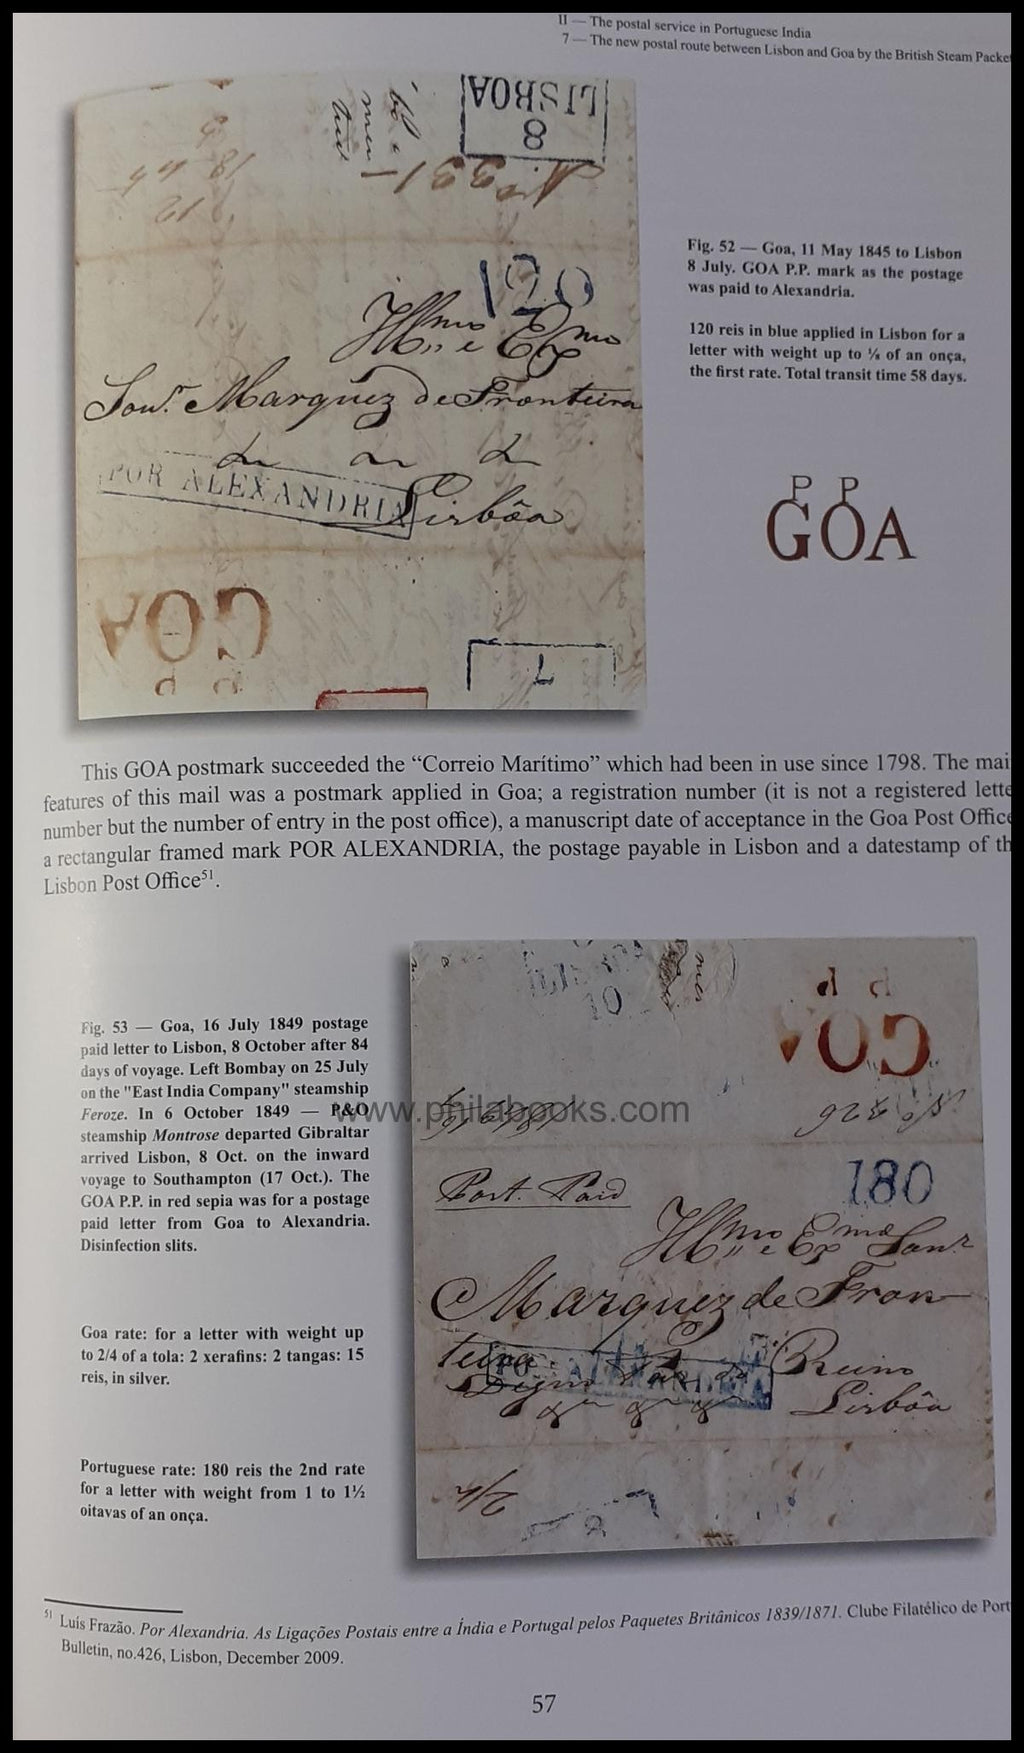 II — The postal service in Portuguese India
7 — The new postal route between Lisbon and Goa by the British Steam Packe
LISBOA
8
120
Illmo e Exmo
Senr. Marquez de Fronteira
POR ALEXANDRIA
Lisbôa
GOA
P P
7
Fig. 52 — Goa, 11 May 1845 to Lisbon
8 July. GOA P.P. mark as the postage
was paid to Alexandria.
120 reis in blue applied in Lisbon for a
letter with weight up to ⅛ of an onça,
the first rate. Total transit time 58 days.
P P
GOA
This GOA postmark succeeded the “Correio Marítimo” which had been in use since 1798. The mai
features of this mail was a postmark applied in Goa; a registration number (it is not a registered lette
number but the number of entry in the post office), a manuscript date of acceptance in the Goa Post Office
a rectangular framed mark POR ALEXANDRIA, the postage payable in Lisbon and a datestamp of th
Lisbon Post Office51.
Fig. 53 — Goa, 16 July 1849 postage
paid letter to Lisbon, 8 October after 84
days of voyage. Left Bombay on 25 July
on the "East India Company" steamship
Feroze. In 6 October 1849 — P&O
steamship Montrose departed Gibraltar
arrived Lisbon, 8 Oct. on the inward
voyage to Southampton (17 Oct.). The
GOA P.P. in red sepia was for a postage
paid letter from Goa to Alexandria.
Disinfection slits.
Goa rate: for a letter with weight up
to 2/4 of a tola: 2 xerafins: 2 tangas: 15
reis, in silver.
Portuguese rate: 180 reis the 2nd rate
for a letter with weight from 1 to 1½
oitavas of an onça.
P P
GOA
www.philabooks.com
Port. Paid
180
Illmo e Exmo Senr
Marquez de Fron-
teira
POR ALEXANDRIA
Digno Par do Reino
Lisbôa
51 Luís Frazão. Por Alexandria. As Ligações Postais entre a Índia e Portugal pelos Paquetes Britânicos 1839/1871. Clube Filatélico de Port
Bulletin, no.426, Lisbon, December 2009.
57